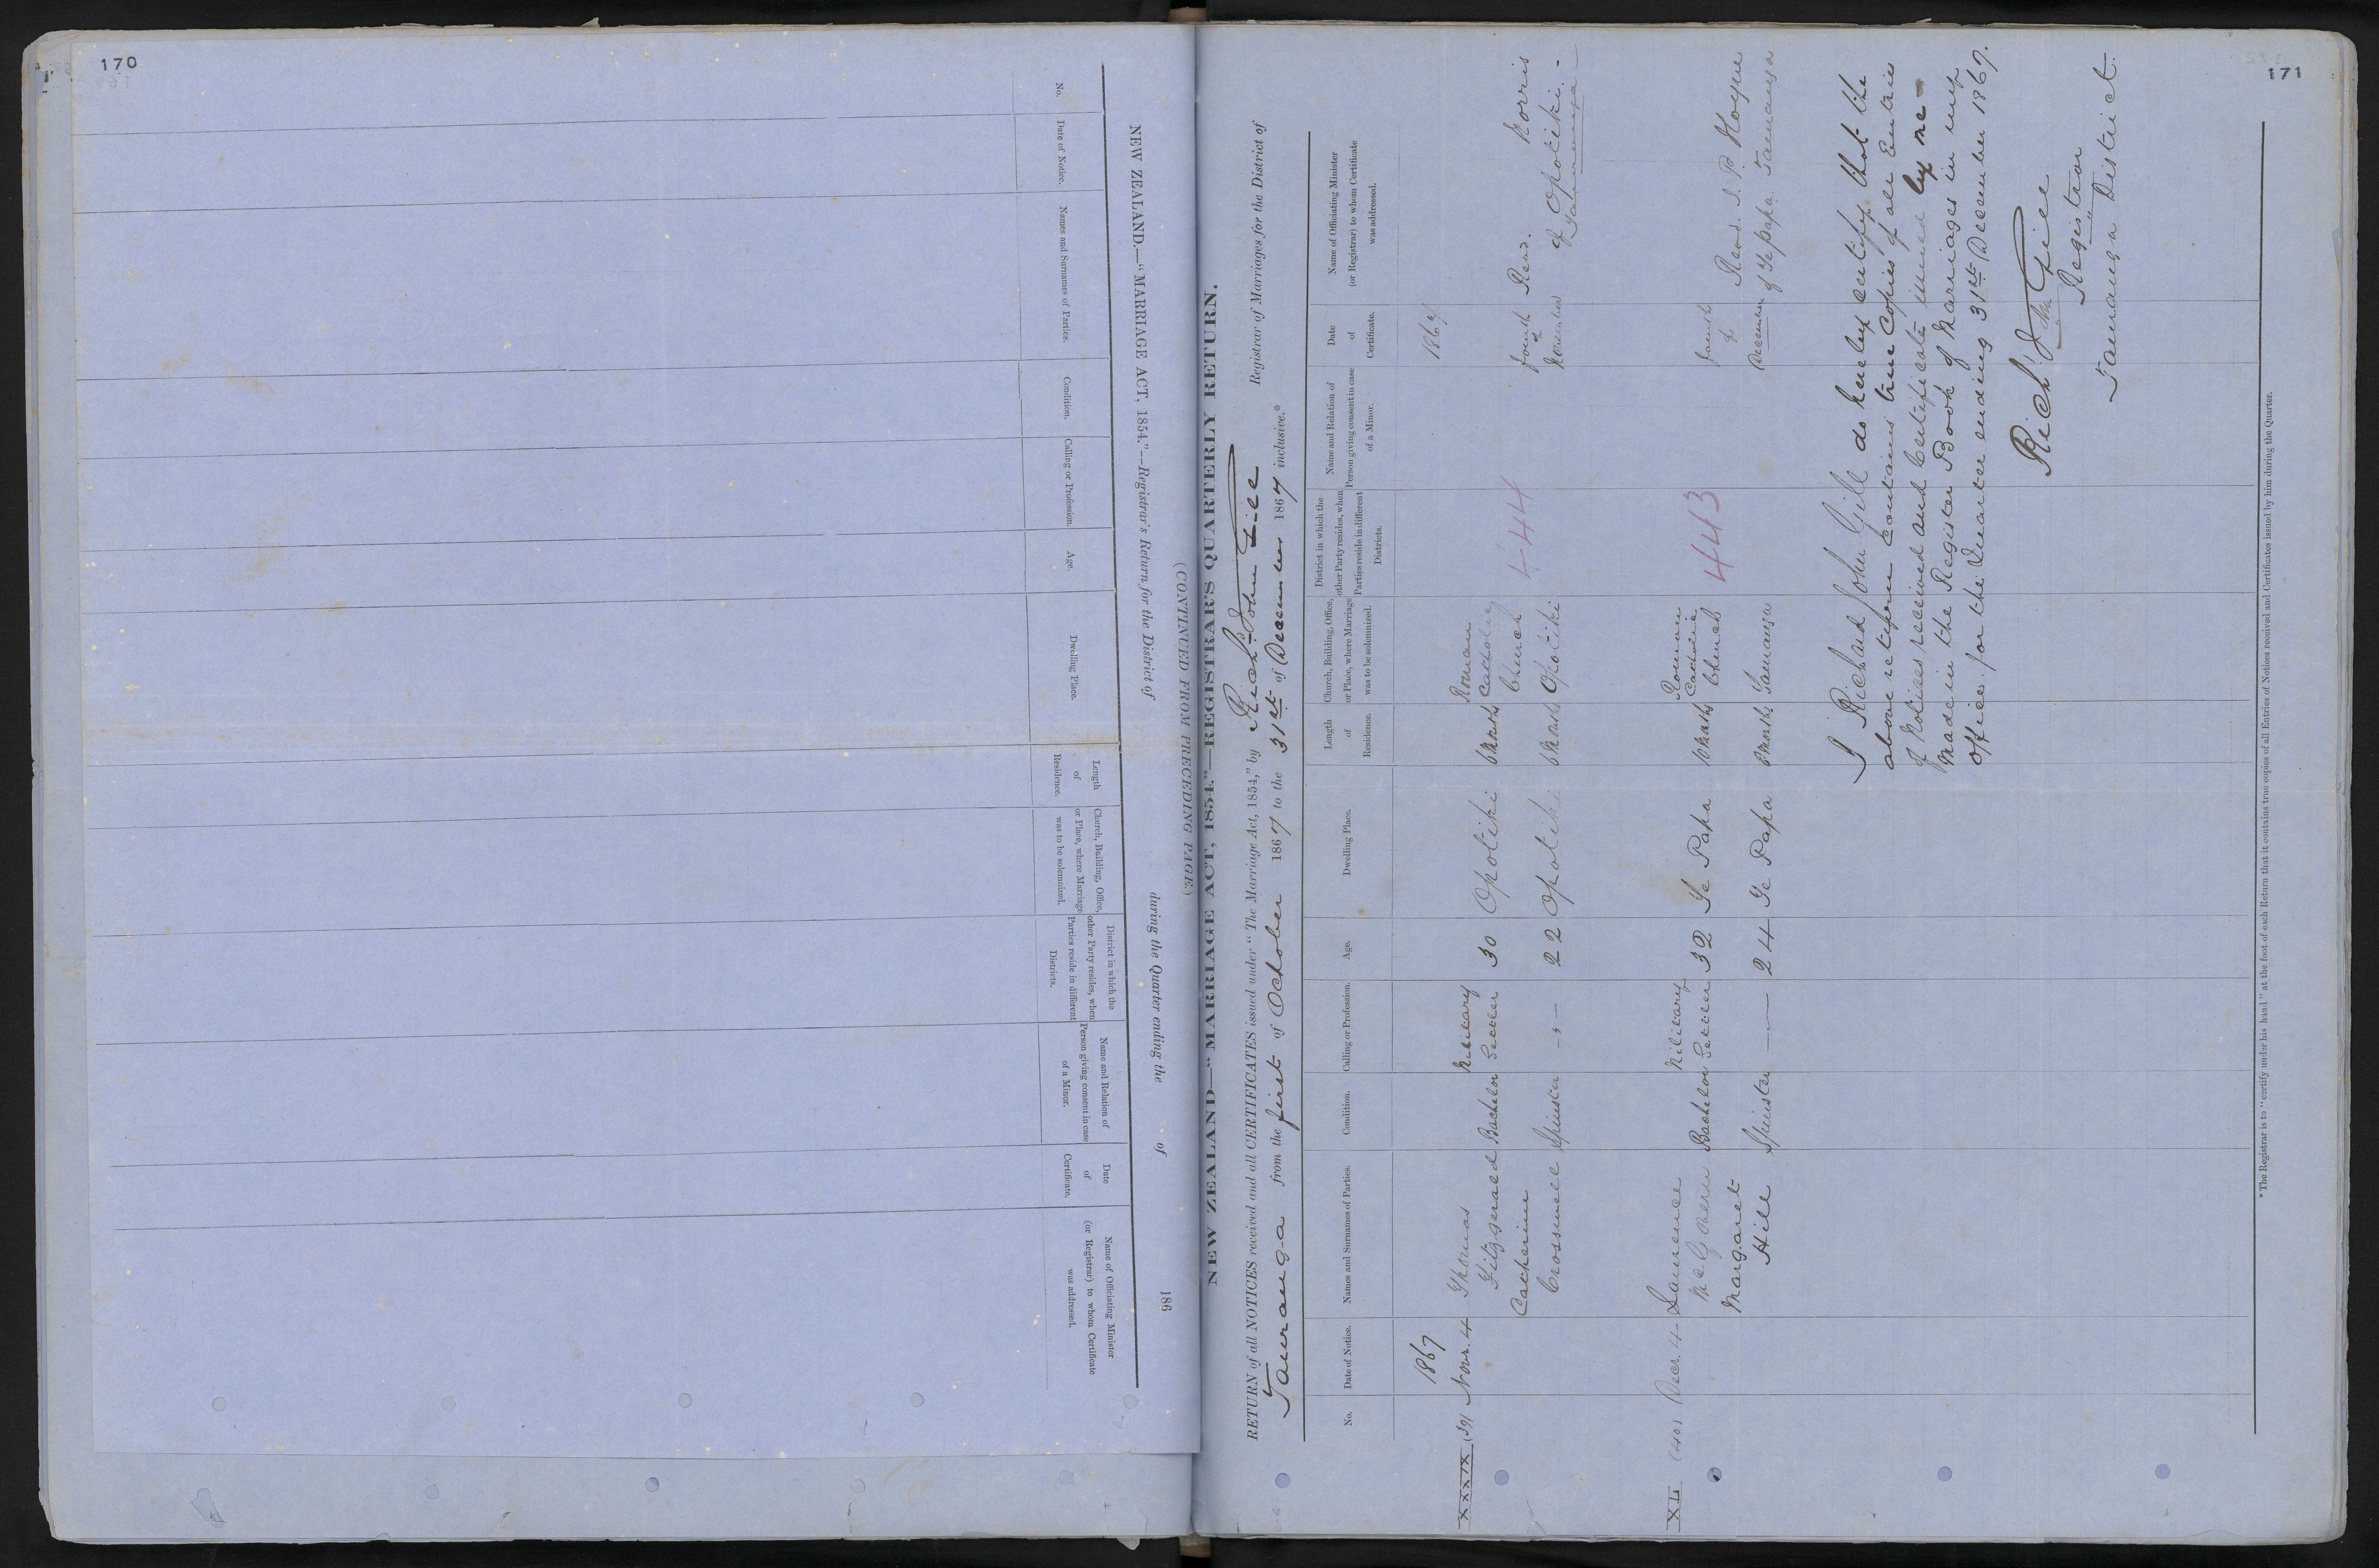 170
NEW ZEALAND.—"MARRIAGE ACT, 1854."—Registrar's Return for the District of during the Quarter ending the of 186
(CONTINUED FROM PRECEDING PAGE)
No.
Date of Notice.
Names and Surnames of Parties.
Condition.
Calling or Profession.
Age.
Dwelling Place.
Length
of
Residence.
Church, Building, Office,
or Place, where Marriage
was to be solemnized.
District in which the
other Party resides, when
Parties reside in different
Districts.
Name and Relation of
Person giving consent in case
of a Minor.
Date
of
Certificate.
Name of Officiating Minister
(or Registrar) to whom Certificate
was addressed.
171
NEW ZEALAND—"MARRIAGE ACT, 1854."—REGISTRAR'S QUARTERLY RETURN.
RETURN of all NOTICES received and all CERTIFICATES issued under "The Marriage Act, 1854," by Richd. John Gill Registrar of Marriages for the District of
Tauranga from the first of October 1867 to the 31st of December 1867 inclusive.*
No.
Date of Notice.
Names and Surnames of Parties.
Condition.
Calling or Profession.
Age.
Dwelling Place.
Length
of
Residence.
Church, Building, Office,
or Place, where Marriage
was to be solemnized.
District in which the
other Party resides, when
Parties reside in different
Districts.
Name and Relation of
Person giving consent in case
of a Minor.
Date
of
Certificate.
Name of Officiating Minister
(or Registrar) to whom Certificate
was addressed.
1867
1867
XXXIX (39) Novr. 4
Thomas
Fitzgerald
Bachelor
Military
Settler
30
Opotiki
Months
Roman
Catholic
Church
Opotiki
444
fourth
of
November
Revd. Norris
of Opotiki -
Tauranga
Catherine
Crosswell
Spinster
22
Opotiki
Months
XL (40) Decr. 4
Laurence
McGovern
Bachelor
Military
Settler
32
Te Papa
Months
Roman
Catholic
Church
Tauranga
443
fourth
of
December
Revd. J. P. Hoyne
of Te Papa, Tauranga
Margaret
Hill
Spinster
24
Te Papa
Months
I Richard John Gill do hereby certify that the
above return contains true Copies of all Entries
of Notices received and Certificates issued by me -
made in the Register Book of Marriages in my
office for the Quarter ending 31st December 1867.
Richd. J Gill
Registrar
Tauranga District.
* The Registrar is to "certify under his hand" at the foot of each Return that it contains true copies of all Entries of Notices received and Certificates issued by him during the Quarter.